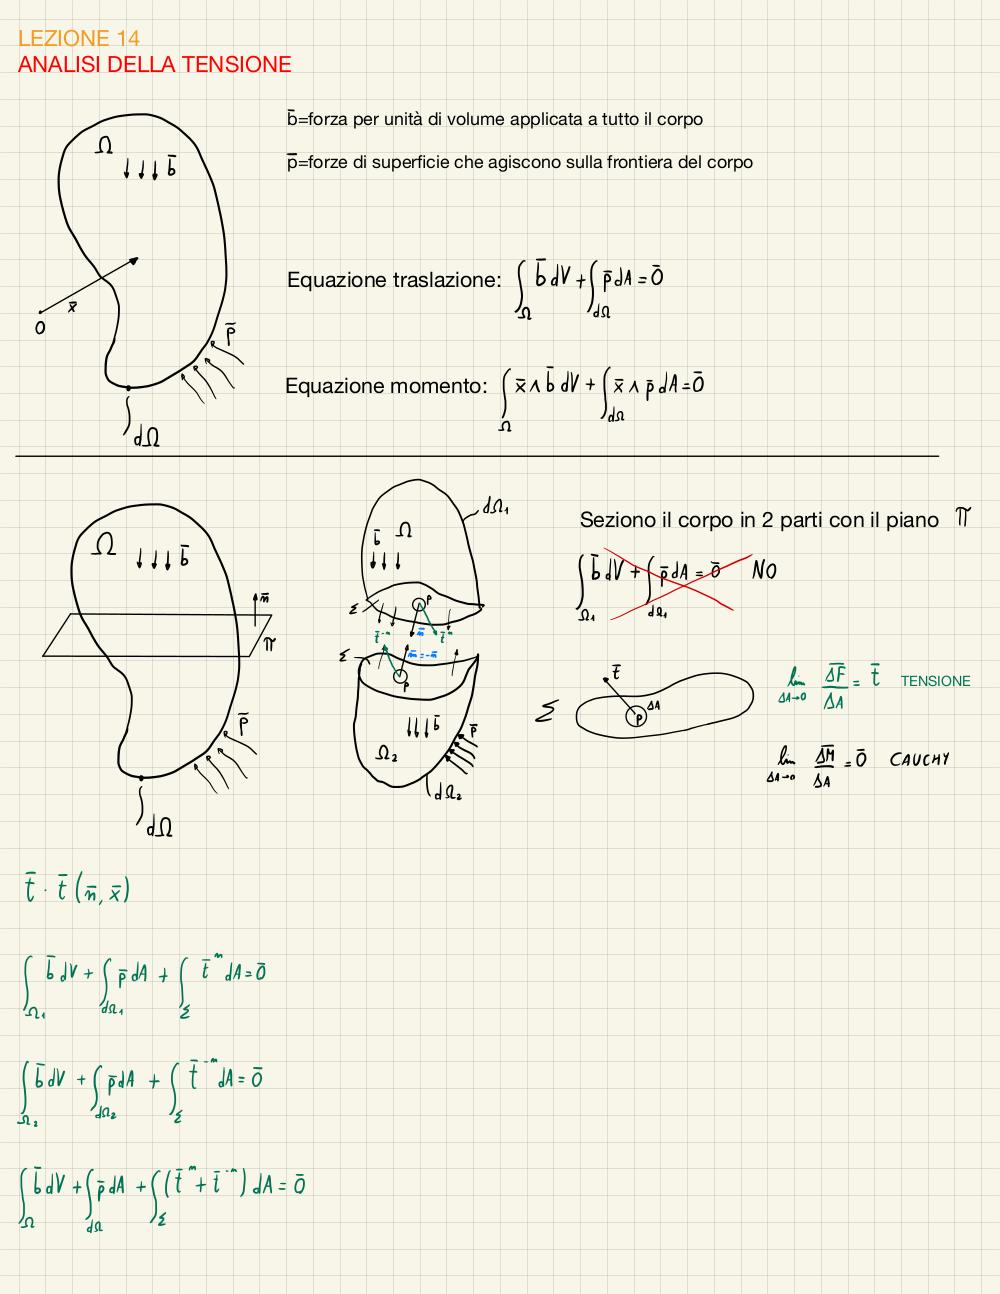 LEZIONE 14
ANALISI DELLA TENSIONE
b̄=forza per unità di volume applicata a tutto il corpo
p̄=forze di superficie che agiscono sulla frontiera del corpo
Ω
b̄
x̄
O
p̄
dΩ
Equazione traslazione: ∫_Ω b̄ dV + ∫_dΩ p̄ dA = ō
Equazione momento: ∫_Ω x̄ ∧ b̄ dV + ∫_dΩ x̄ ∧ p̄ dA = ō
Ω
b̄
n̄
π
p̄
dΩ
dΩ₁
b̄ Ω
Σ
P
t̄⁻ⁿ n̄ t̄ⁿ
Σ
m̄ = -n̄
P
b̄
p̄
Ω₂
dΩ₂
Seziono il corpo in 2 parti con il piano π
∫_Ω₁ b̄ dV + ∫_dΩ₁ p̄ dA = ō NO
Σ
t̄
P
ΔA
lim_ΔA→0 ΔF̄/ΔA = t̄ TENSIONE
lim_ΔA→0 ΔM̄/ΔA = ō CAUCHY
t̄ · t̄ (n̄, x̄)
∫_Ω₁ b̄ dV + ∫_dΩ₁ p̄ dA + ∫_Σ t̄ⁿ dA = ō
∫_Ω₂ b̄ dV + ∫_dΩ₂ p̄ dA + ∫_Σ t̄⁻ⁿ dA = ō
∫_Ω b̄ dV + ∫_dΩ p̄ dA + ∫_Σ (t̄ⁿ + t̄⁻ⁿ) dA = ō